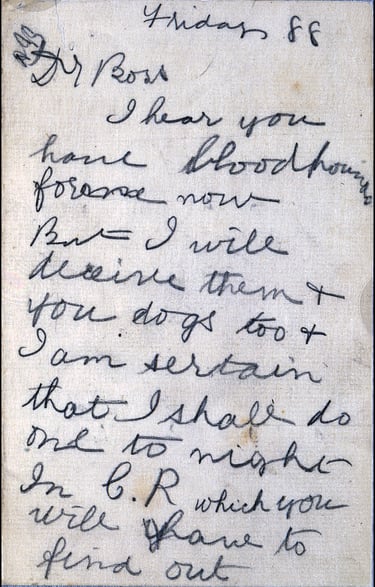 Friday 88
Dr Boss
I hear you
have bloodhounds
for me now
But I will
deceive them +
you dogs too +
I am sertain
that I shall do
one to night
In C.R which you
will have to
find out